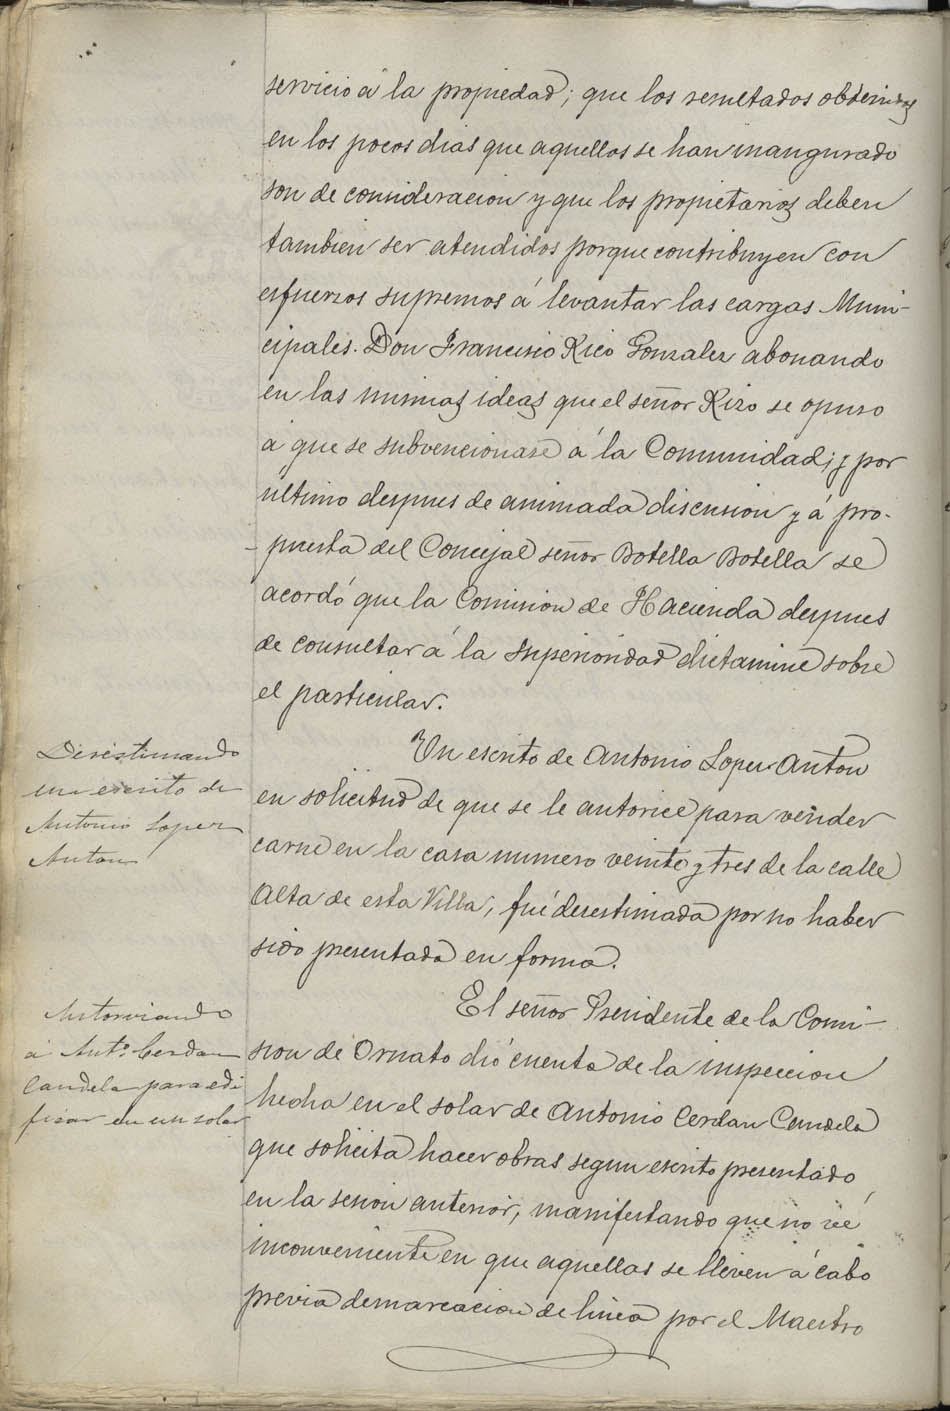 servicio á la propiedad; que los resultados obtenidos
en los pocos dias que aquellos se han inaugurado
son de consideracion y que los propietarios deben
tambien ser atendidos porque contribuyen con
esfuerzos supremos á levantar las cargas Muni-
cipales. Don Francisco Rico Gonzalez abonando
en las mismas ideas que el señor Rizo se opuso
a que se subvencionase á la Comunidad; y por
ultimo despues de animada discusion y á pro-
puesta del Concejal señor Botella Botella se
acordó que la Comision de Hacienda despues
de consultar á la Superioridad dictamine sobre
el particular.
Desestimando
un escrito de
Antonio Lopez
Anton
Un escrito de Antonio Lopez Anton
en solicitud de que se le autorice para vender
carne en la casa numero veinte y tres de la calle
Alta de esta Villa, fué desestimada por no haber
sido presentada en forma.
Autorizando
á Antº. Cerdan
Candela para edi
ficar en un solar
El señor Presidente de la Comi-
sion de Ornato dió cuenta de la inspeccion
hecha en el solar de Antonio Cerdan Candela
que solicita hacer obras segun escrito presentado
en la sesion anterior, manifestando que no vé
inconveniente en que aquellas se lleven á cabo
previa demarcacion de linea por el Maestro